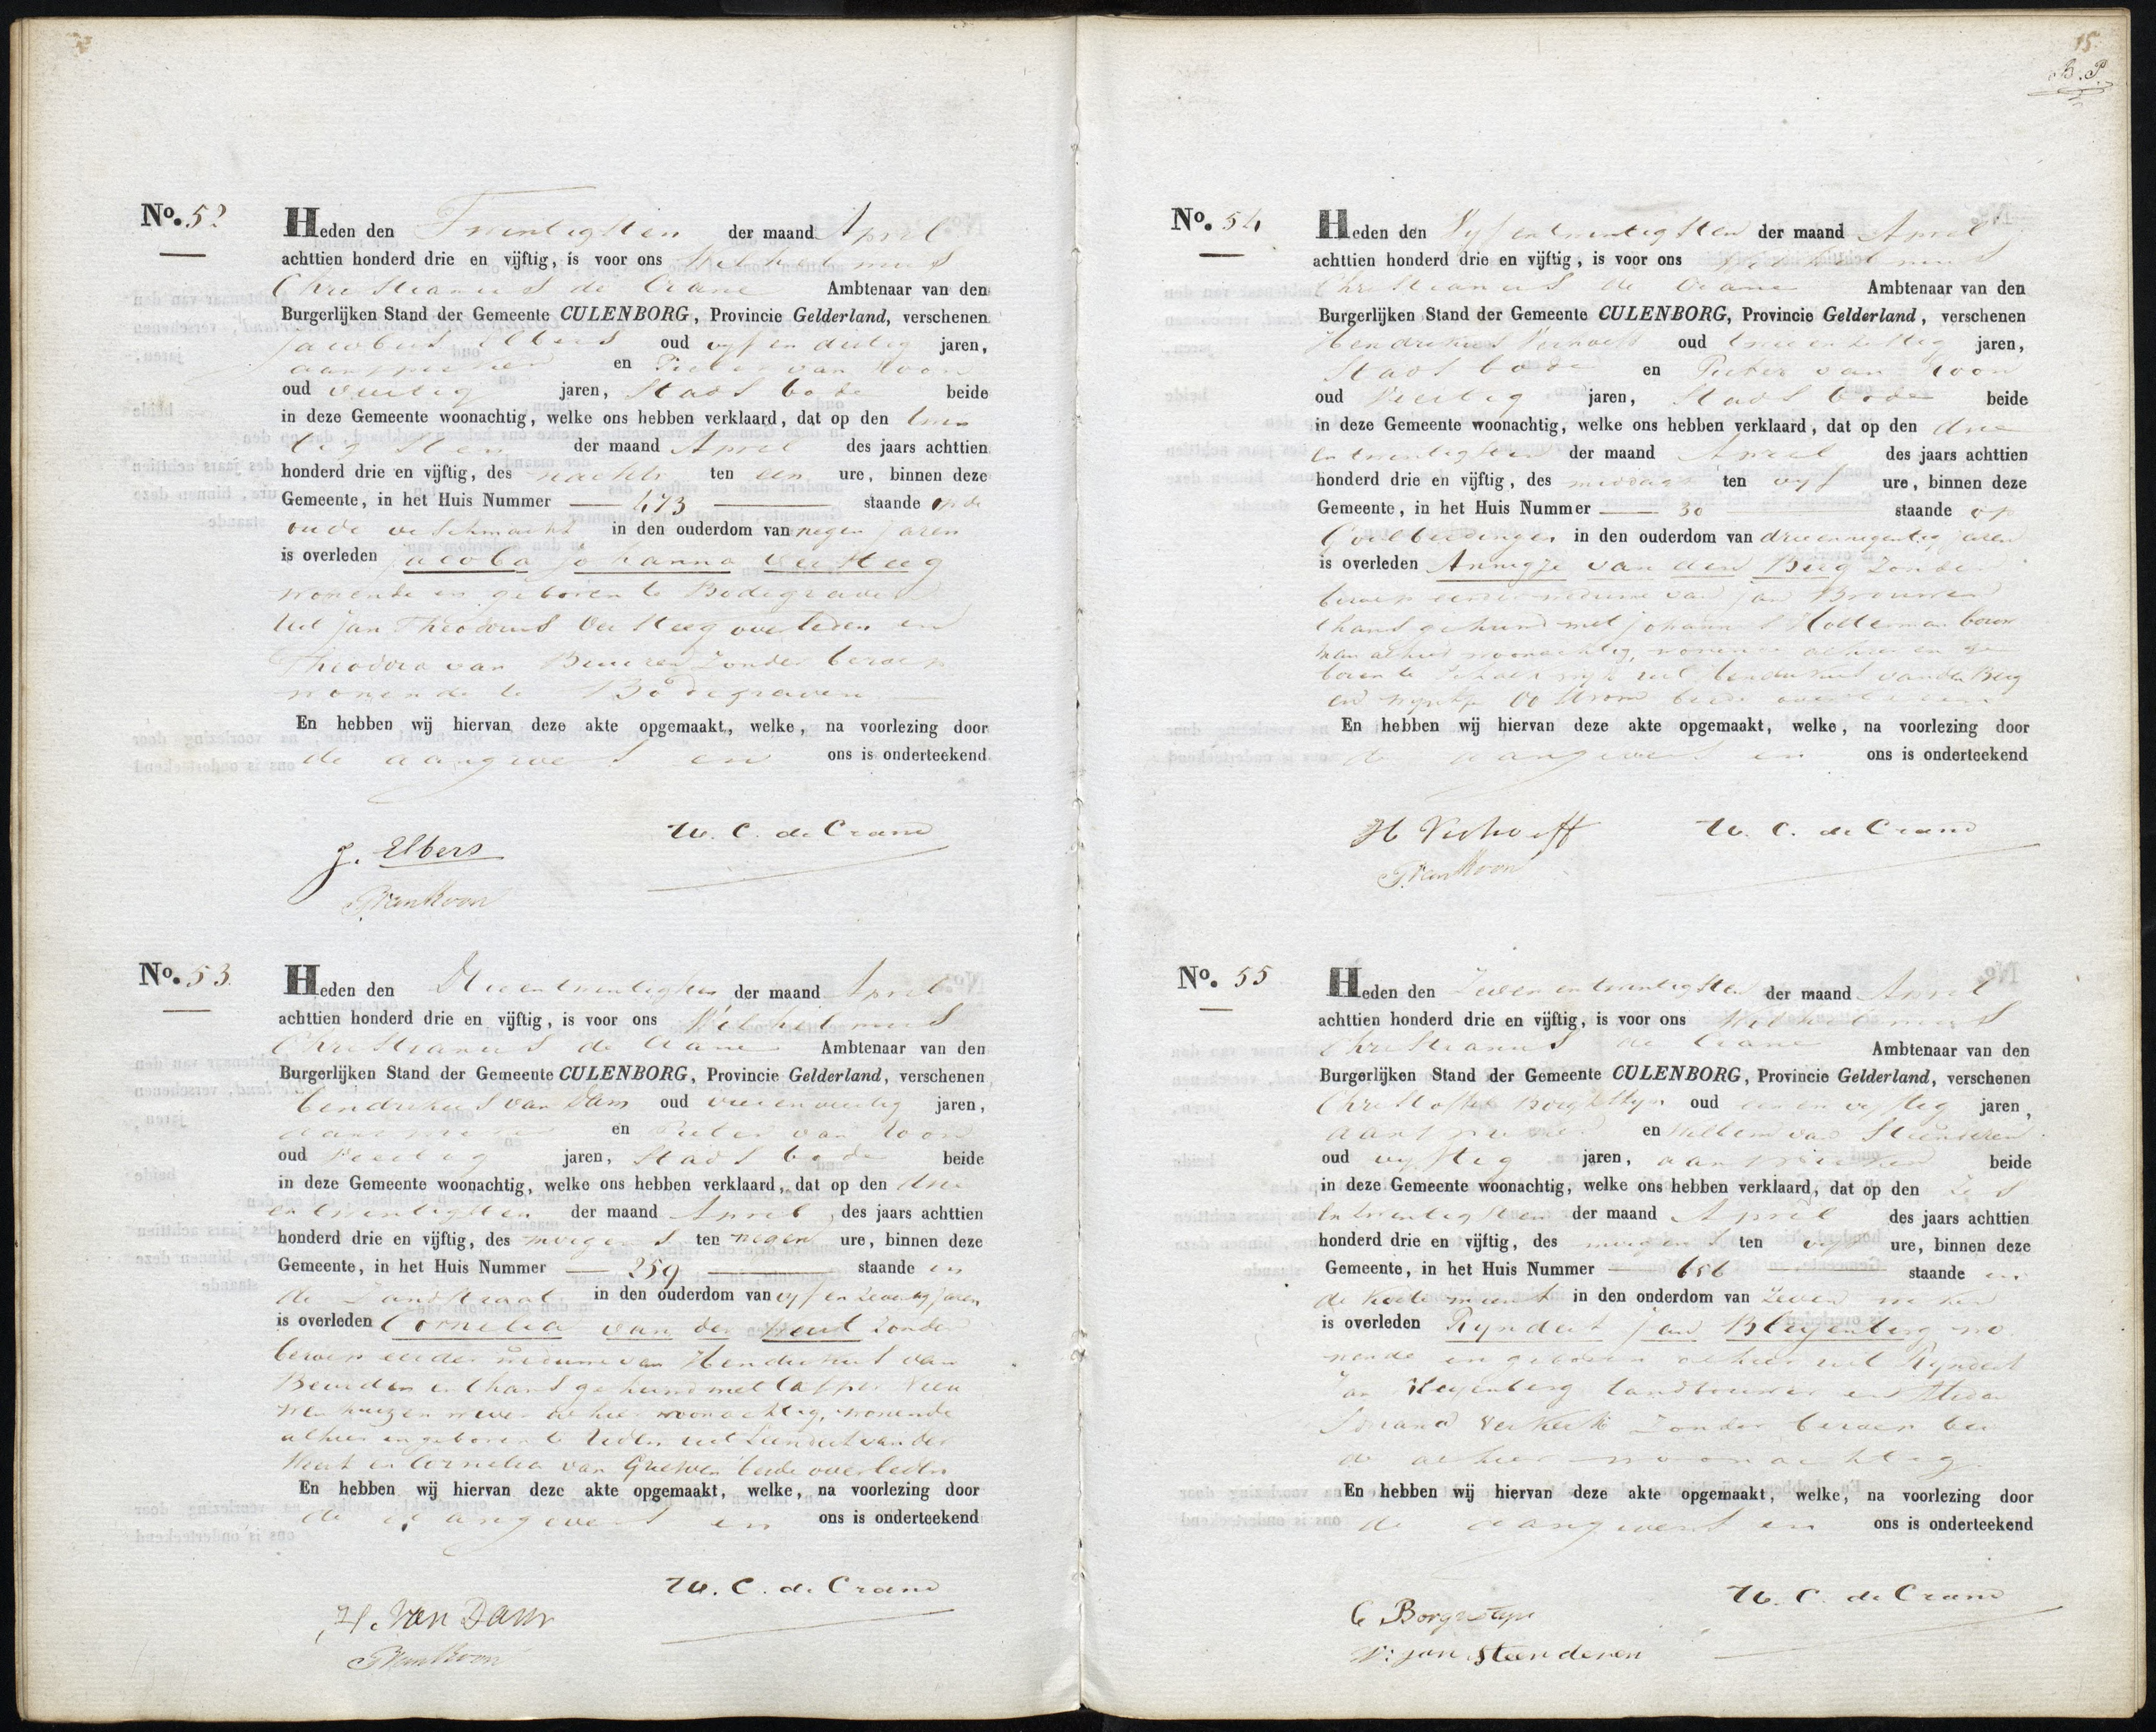 No. 52
Heden den Twintigsten der maand April
achttien honderd drie en vijftig, is voor ons Wilhelmus
Christianus de Crane Ambtenaar van den
Burgerlijken Stand der Gemeente CULENBORG, Provincie Gelderland, verschenen
Jacobus Elbers oud vyf en dertig jaren,
aanspreker en Pieter van Roon
oud veertig jaren, Stads bode beide
in deze Gemeente woonachtig, welke ons hebben verklaard, dat op den twin
tigsten der maand April des jaars achttien
honderd drie en vijftig, des nachts ten een ure, binnen deze
Gemeente, in het Huis Nummer 473 staande op de
oude vischmarkt in den ouderdom van negen jaren
is overleden Jacoba Johanna Versteeg
wonende en geboren te Bodegraven
uit Jan Theodorus Versteeg overleden en
Theodora van Beuzen zonder beroep
wonende te Bodegraven
En hebben wij hiervan deze akte opgemaakt, welke, na voorlezing door
de aangevers en ons is onderteekend
W. C. de Crane
J. Elbers
P. van Roon
No. 53
Heden den Drieentwintigsten der maand April
achttien honderd drie en vijftig, is voor ons Wilhelmus
Christianus de Crane Ambtenaar van den
Burgerlijken Stand der Gemeente CULENBORG, Provincie Gelderland, verschenen
Hendrikus van Dam oud vierenveertig jaren,
aanspreker en Pieter van Roon
oud Veertig jaren, Stads bode beide
in deze Gemeente woonachtig, welke ons hebben verklaard, dat op den drie
en twintigsten der maand April des jaars achttien
honderd drie en vijftig, des morgens ten negen ure, binnen deze
Gemeente, in het Huis Nummer 259 staande in
de Zandstraat in den ouderdom van vyf en zeventig jaren
is overleden Cornelia van der Weert zonder
beroep eerder weduwe van Hendrikus van
en thans gehuwd met Casper
wever alhier woonachtig, wonende
alhier en geboren te uit Leendert van der
Weert en Cornelia van beide overleden
En hebben wij hiervan deze akte opgemaakt, welke, na voorlezing door
de aangevers en ons is onderteekend
W. C. de Crane
H. Van Dam
P. van Roon
15
B. P.
No. 54
Heden den Vyfentwintigsten der maand April
achttien honderd drie en vijftig, is voor ons Wilhelmus
Christianus de Crane Ambtenaar van den
Burgerlijken Stand der Gemeente CULENBORG, Provincie Gelderland, verschenen
Hendrikus Verhoeff oud twee en zestig jaren,
Stads bode en Pieter van Roon
oud Veertig jaren, Stads bode beide
in deze Gemeente woonachtig, welke ons hebben verklaard, dat op den drie
en twintigsten der maand April des jaars achttien
honderd drie en vijftig, des middags ten vyf ure, binnen deze
Gemeente, in het Huis Nummer 30 staande op
Goilberdingen in den ouderdom van drieennegentig jaren
is overleden Annigje van den Berg zonder
beroep eerder weduwe van Jan Brouwer
thans gehuwd met Johannes Holleman bouw
man alhier woonachtig, wonende alhier en ge
boren te Schalkwijk uit Hendrikus van den Berg
en beide overleden
En hebben wij hiervan deze akte opgemaakt, welke, na voorlezing door
de aangevers en ons is onderteekend
H Verhoeff W. C. de Crane
P. van Roon
No. 55
Heden den Zevenentwintigsten der maand April
achttien honderd drie en vijftig, is voor ons Wilhelmus
Christianus de Crane Ambtenaar van den
Burgerlijken Stand der Gemeente CULENBORG, Provincie Gelderland, verschenen
Christoffel Borgstyn oud een en vyftig jaren,
aanspreker en Willem van Steenderen
oud vyftig jaren, aanspreker beide
in deze Gemeente woonachtig, welke ons hebben verklaard, dat op den Zes
en twintigsten der maand April des jaars achttien
honderd drie en vijftig, des morgens ten vyf ure, binnen deze
Gemeente, in het Huis Nummer 656 staande in
de in den onderdom van zeven weken
is overleden Ryndert Jan Bleyenberg wo
nende en geboren alhier uit Ryndert
Jan Bleyenberg landbouwer en
Verkerk zonder beroep bei
de alhier woonachtig.
En hebben wij hiervan deze akte opgemaakt, welke, na voorlezing door
de aangevers en ons is onderteekend
W. C. de Crane
C Borgstyn
W: van Steenderen